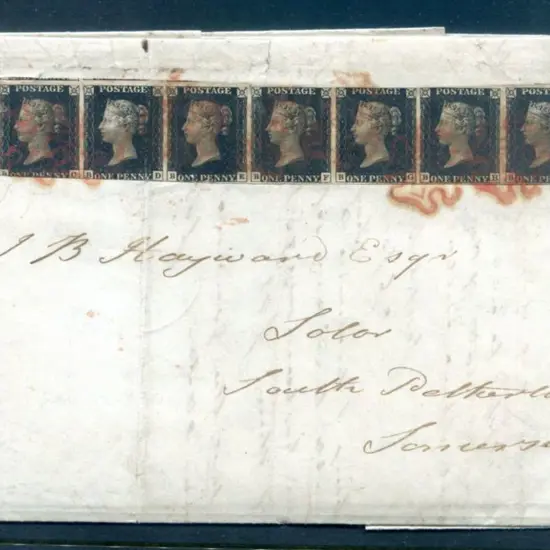 POSTAGE POSTAGE POSTAGE POSTAGE POSTAGE POSTAGE POSTAGE
ONE PENNY C B ONE PENNY D B ONE PENNY E B ONE PENNY F B ONE PENNY G B ONE PENNY H ONE
J B Hayward Esqr
Solor
South Pethert
Somerse